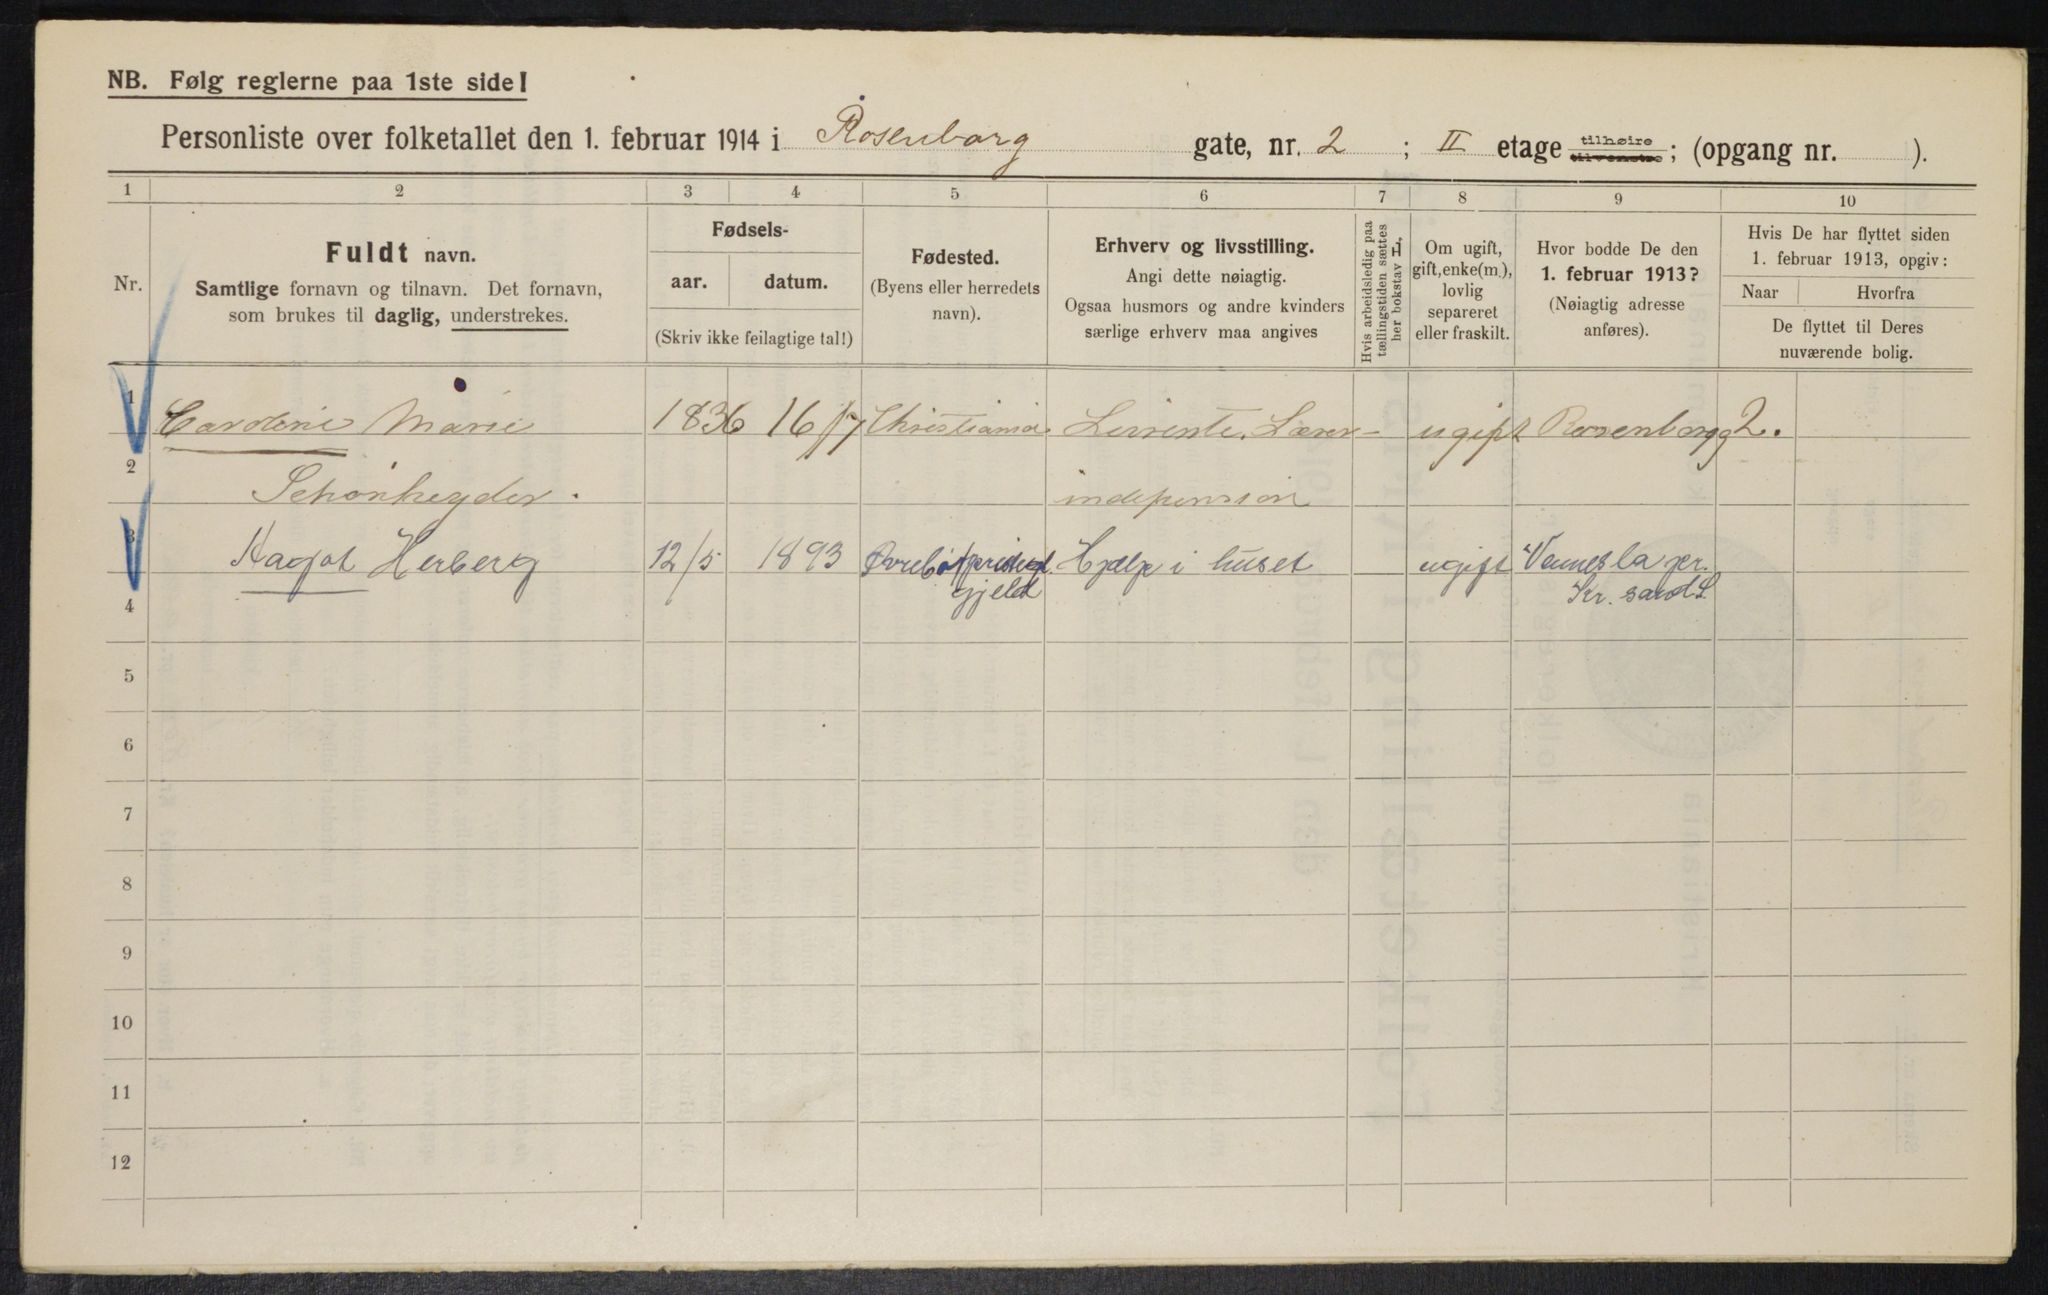 NB. Følg reglerne paa 1ste side!
Personliste over folketallet den 1. februar 1914 i Rosenborg gate, nr. 2 ; II etage tilhøire tilvenstre ; (opgang nr. ).
1 2 3 4 5 6 7 8 9 10
Nr.
Fuldt navn.
Samtlige fornavn og tilnavn. Det fornavn,
som brukes til daglig, understrekes.
Fødsels-
aar. datum.
(Skriv ikke feilagtige tal!)
Fødested.
(Byens eller herredets
navn).
Erhverv og livsstilling.
Angi dette nøiagtig.
Ogsaa husmors og andre kvinders
særlige erhverv maa angives
Hvis arbeidsledig paa
tællingstiden sættes
her bokstav L.
Om ugift,
gift, enke(m.),
lovlig
separeret
eller fraskilt.
Hvor bodde De den
1. februar 1913?
(Nøiagtig adresse
anføres).
Hvis De har flyttet siden
1. februar 1913, opgiv:
Naar Hvorfra
De flyttet til Deres
nuværende bolig.
1 Caroline Marie 1836 16/7 Christiania Livrente, Lærer- ugift Rosenborgg 2.
2 Schønheyder. indepension
3 Hagot Herberg 12/5 1893 Hjælp i huset ugift Vennesla per.
4 gjeld Kr. sand S.
5
6
7
8
9
10
11
12